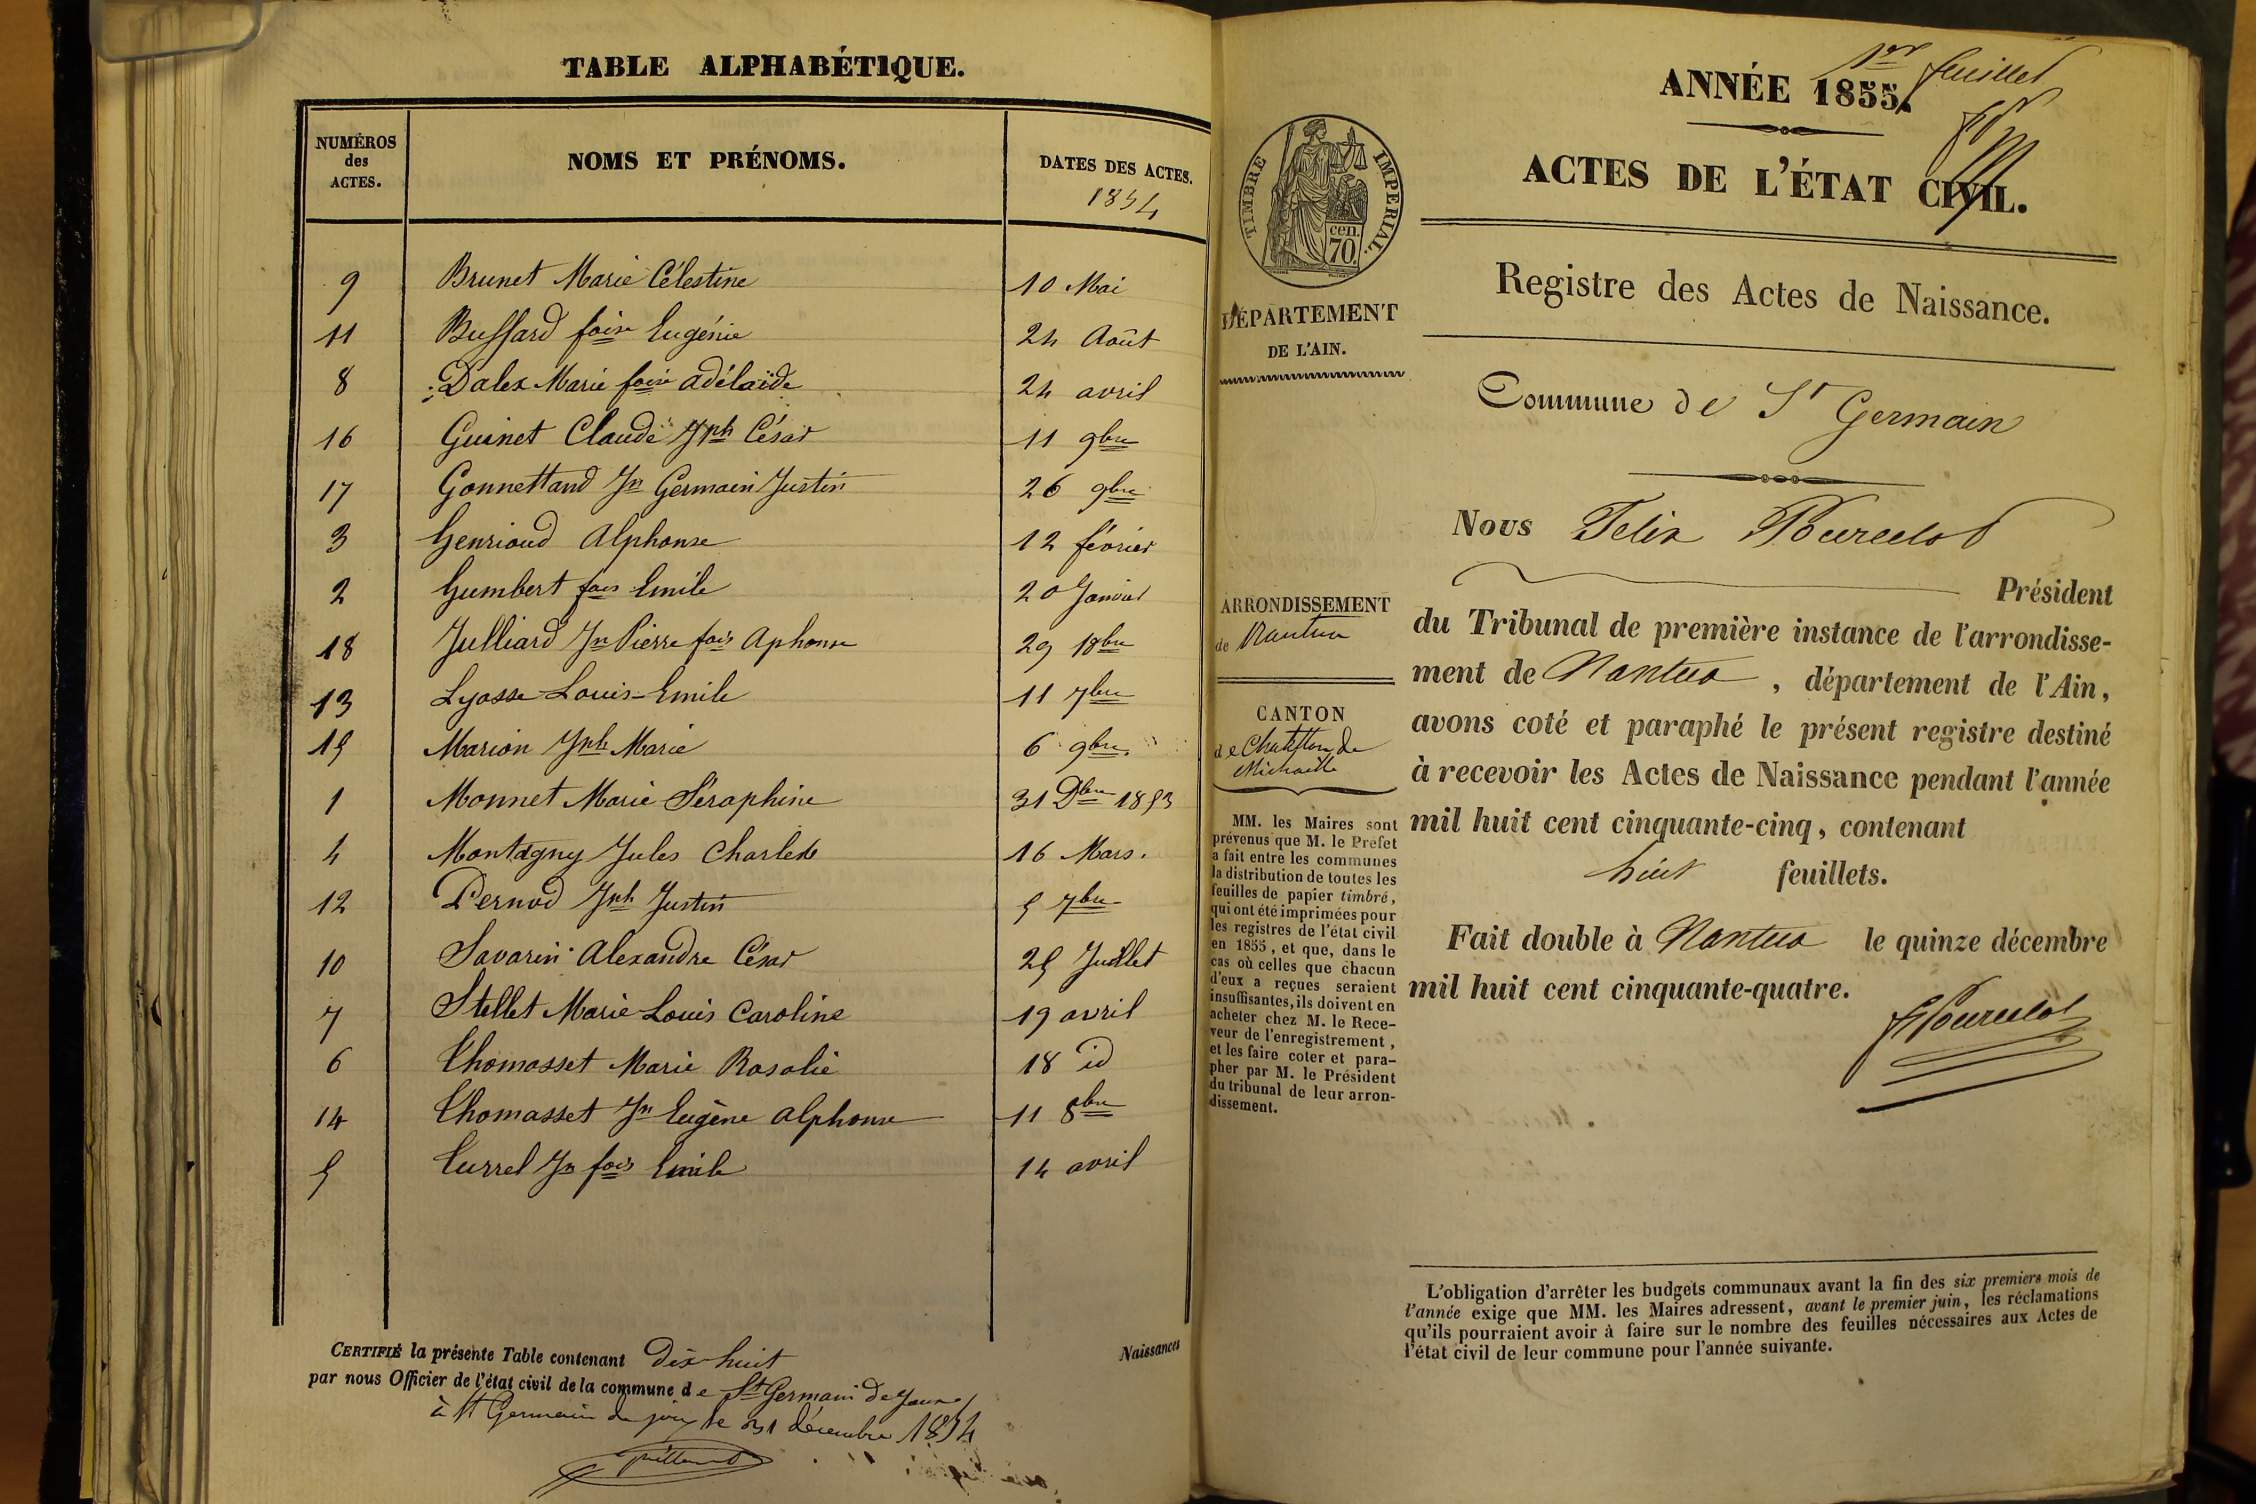 TABLE ALPHABÉTIQUE.
NUMÉROS
des
ACTES.
NOMS ET PRÉNOMS.
DATES DES ACTES.
1854
9 Brunet Marie Célestine 10 Mai
11 Buffard foise Eugénie 24 Août
8 Dalex Marie foise adélaïde 24 avril
16 Guinet Claude Jph César 11 9bre
17 Gonnettand Jn Germain Justin 26 9bre
3 Genrioud Alphonse 12 février
2 Gumbert fois Emile 20 Janvier
18 Julliard Jn Pierre fois Aphonse 29 10bre
13 Lyosse Louis-Emile 11 7bre
15 Marion Jph Marie 6 9bre.
1 Monnet Marie Séraphine 31 Dbre 1853
4 Montagny Jules Charles 16 Mars.
12 Pernod Jph Justin 5 7bre
10 Savarin Alexandre César 25 Juillet
7 Stellet Marie Louis Caroline 19 avril
6 Thomasset Marie Rosalie 18 id
14 Thomasset Jn Eugène Alphonse 11 8bre
5 Turrel Jn fois Emile 14 avril
CERTIFIÉ la présente Table contenant dix-huit Naissances
par nous Officier de l'état civil de la commune de St Germain de Joux
à St Germain de joux le 31 décembre 1854
1er feuillet
ANNÉE 1855.
ACTES DE L'ÉTAT CIVIL.
TIMBRE IMPERIAL.
cen.
70.
DÉPARTEMENT
DE L'AIN.
Registre des Actes de Naissance.
Commune de St Germain
Nous Felix Pourcelot
Président
du Tribunal de première instance de l'arrondisse-
ment de Nantua, département de l'Ain,
avons coté et paraphé le présent registre destiné
à recevoir les Actes de Naissance pendant l'année
mil huit cent cinquante-cinq, contenant
huit feuillets.
Fait double à Nantua le quinze décembre
mil huit cent cinquante-quatre.
FPourcelot
ARRONDISSEMENT
de Nantua
CANTON
de Chatillon de
Michaille
MM. les Maires sont
prévenus que M. le Préfet
a fait entre les communes
la distribution de toutes les
feuilles de papier timbré,
qui ont été imprimées pour
les registres de l'état civil
en 1855, et que, dans le
cas où celles que chacun
d'eux a reçues seraient
insuffisantes, ils doivent en
acheter chez M. le Rece-
veur de l'enregistrement,
et les faire coter et para-
pher par M. le Président
du tribunal de leur arron-
dissement.
L'obligation d'arrêter les budgets communaux avant la fin des six premiers mois de
l'année exige que MM. les Maires adressent, avant le premier juin, les réclamations
qu'ils pourraient avoir à faire sur le nombre des feuilles nécessaires aux Actes de
l'état civil de leur commune pour l'année suivante.